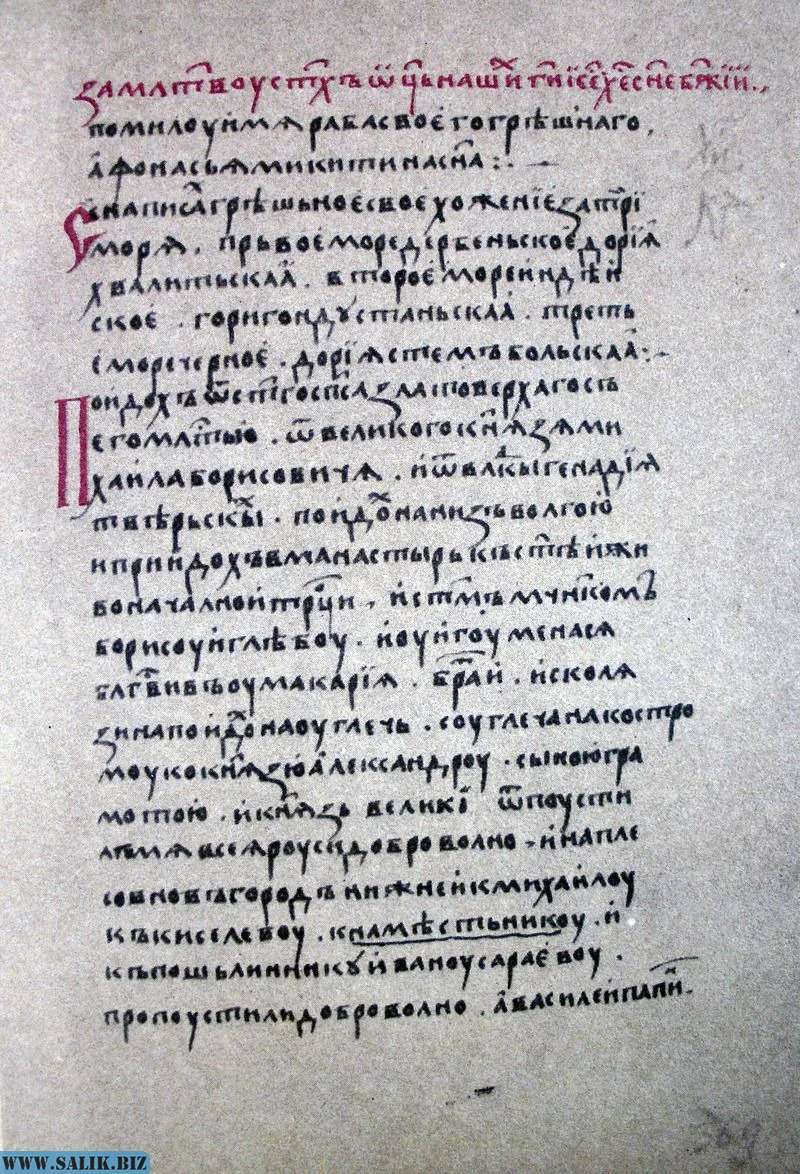 За мл҃твоу ст҃хъ ѿц҃ь нашⷯи гⷭ҇и іс҃е хе҃ сн҃е бж҃ій.,
помилоуй мѧ раба своего грѣшнаго,
аѳонасьѧ микитина сн҃а:.
Се написа грѣшьное свое хоженіе за три
морѧ. прьвое море дербеньское дорїѧ
хвалитьскаа. второе море индѣй
ское. гори гондустаньскаа. треть
е море черное. дорїѧ стемъбольскаа:
Поидохъ ѿ ст҃го сп҃са златоверхаго съ
его млⷭ҇тїю. ѿ великого кнѧзѧ ми
хаила борисовичѧ. и ѿ влⷣкы генадїѧ
твѣрьскⷪ҇ы. поидⷪ҇ на низъ волгою
и прийдохъ в манастырь къ ст҃ѣй жи
воначалной трⷪ҇ци, и ст҃мъ мчн҃комъ
борисоу и глѣбоу. и оу игоумена сѧ
блг҃вивъ оу макарїѧ. браⷮи. и с колѧ
зина поидⷪ҇ на оуглечь. с оуглеча на костро
моу ко кнѧзю александроу. с ыною гра
мотою. и кнѧзь великі ѿпоусти
лъ мѧ всеѧ роуси доброволно. и на пле
со в новъгородъ нижней к михайлоу
къ киселевоу. к намѣстьникоу. и
къ пошьлинникоу иваноу сараевоу.
пропоустили доброволно. а василей папин.
WWW.SALIK.BIZ